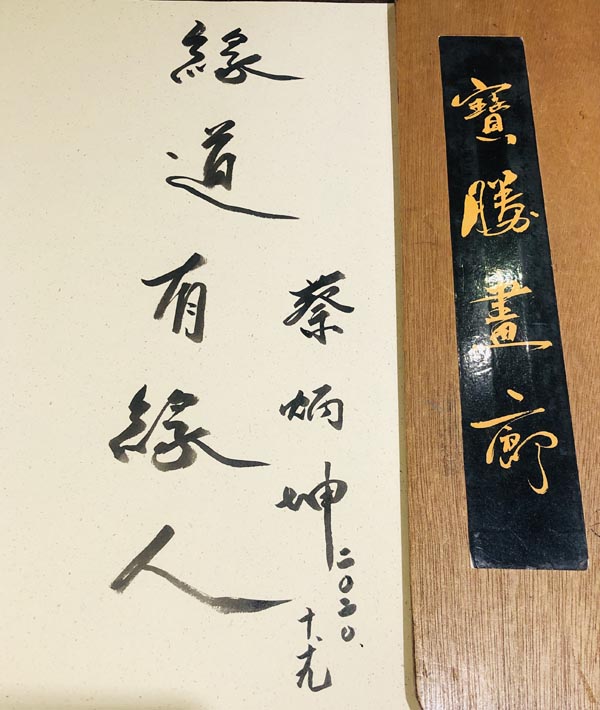 緣道有緣人
蔡炳坤
二〇二〇.
十.十九
寶勝畫廊